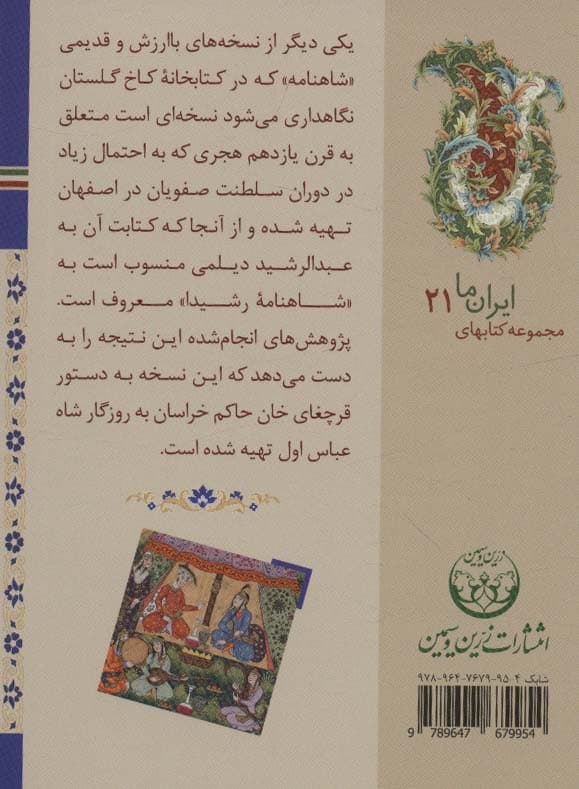 یکی دیگر از نسخه‌های باارزش و قدیمی
«شاهنامه» که در کتابخانهٔ کاخ گلستان
نگاهداری می‌شود نسخه‌ای است متعلق
به قرن یازدهم هجری که به احتمال زیاد
در دوران سلطنت صفویان در اصفهان
تهیه شده و از آنجا که کتابت آن به
عبدالرشید دیلمی منسوب است به
«شاهنامهٔ رشیدا» معروف است.
پژوهش‌های انجام‌شده این نتیجه را به
دست می‌دهد که این نسخه به دستور
قرچغای خان حاکم خراسان به روزگار شاه
عباس اول تهیه شده است.
ایران ما ۲۱
مجموعه کتابهای
زرین و سیمین
انتشارات زرین و سیمین
شابک ۹۷۸-۹۶۴-۷۶۷۹-۹۵-۴
9 789647 679954